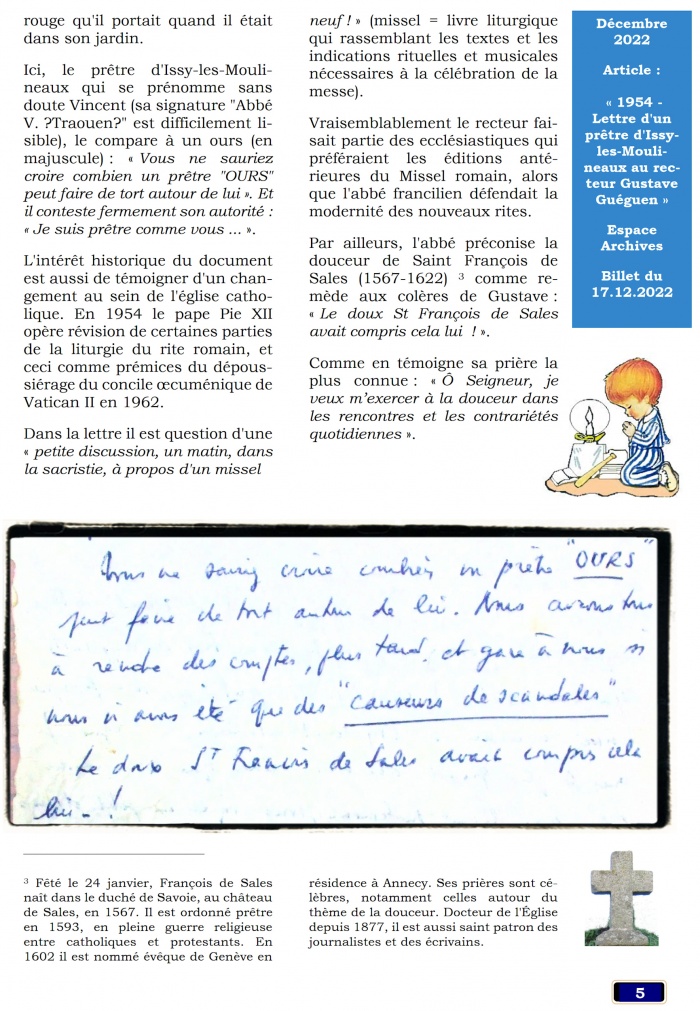 rouge qu'il portait quand il était
dans son jardin.
Ici, le prêtre d'Issy-les-Mouli-
neaux qui se prénomme sans
doute Vincent (sa signature "Abbé
V. ?Traouen?" est difficilement li-
sible), le compare à un ours (en
majuscule) : « Vous ne sauriez
croire combien un prêtre "OURS"
peut faire de tort autour de lui ». Et
il conteste fermement son autorité :
« Je suis prêtre comme vous ... ».
L'intérêt historique du document
est aussi de témoigner d'un chan-
gement au sein de l'église catho-
lique. En 1954 le pape Pie XII
opère révision de certaines parties
de la liturgie du rite romain, et
ceci comme prémices du dépous-
siérage du concile œcuménique de
Vatican II en 1962.
Dans la lettre il est question d'une
« petite discussion, un matin, dans
la sacristie, à propos d'un missel
neuf ! » (missel = livre liturgique
qui rassemblant les textes et les
indications rituelles et musicales
nécessaires à la célébration de la
messe).
Vraisemblablement le recteur fai-
sait partie des ecclésiastiques qui
préféraient les éditions anté-
rieures du Missel romain, alors
que l'abbé francilien défendait la
modernité des nouveaux rites.
Par ailleurs, l'abbé préconise la
douceur de Saint François de
Sales (1567-1622) ³ comme re-
mède aux colères de Gustave :
« Le doux St François de Sales
avait compris cela lui ! ».
Comme en témoigne sa prière la
plus connue : « Ô Seigneur, je
veux m'exercer à la douceur dans
les rencontres et les contrariétés
quotidiennes ».
Décembre
2022
Article :
« 1954 -
Lettre d'un
prêtre d'Issy-
les-Mouli-
neaux au rec-
teur Gustave
Guéguen »
Espace
Archives
Billet du
17.12.2022
Vous ne sauriez croire combien un prêtre "OURS"
peut faire de tort autour de lui. Nous aurons tous
à rendre des comptes, plus tard, et gare à nous si
nous n'avons été que des "causeurs de scandales"
Le doux St François de Sales avait compris cela
lui - !
³ Fêté le 24 janvier, François de Sales
naît dans le duché de Savoie, au château
de Sales, en 1567. Il est ordonné prêtre
en 1593, en pleine guerre religieuse
entre catholiques et protestants. En
1602 il est nommé évêque de Genève en
résidence à Annecy. Ses prières sont cé-
lèbres, notamment celles autour du
thème de la douceur. Docteur de l'Église
depuis 1877, il est aussi saint patron des
journalistes et des écrivains.
5